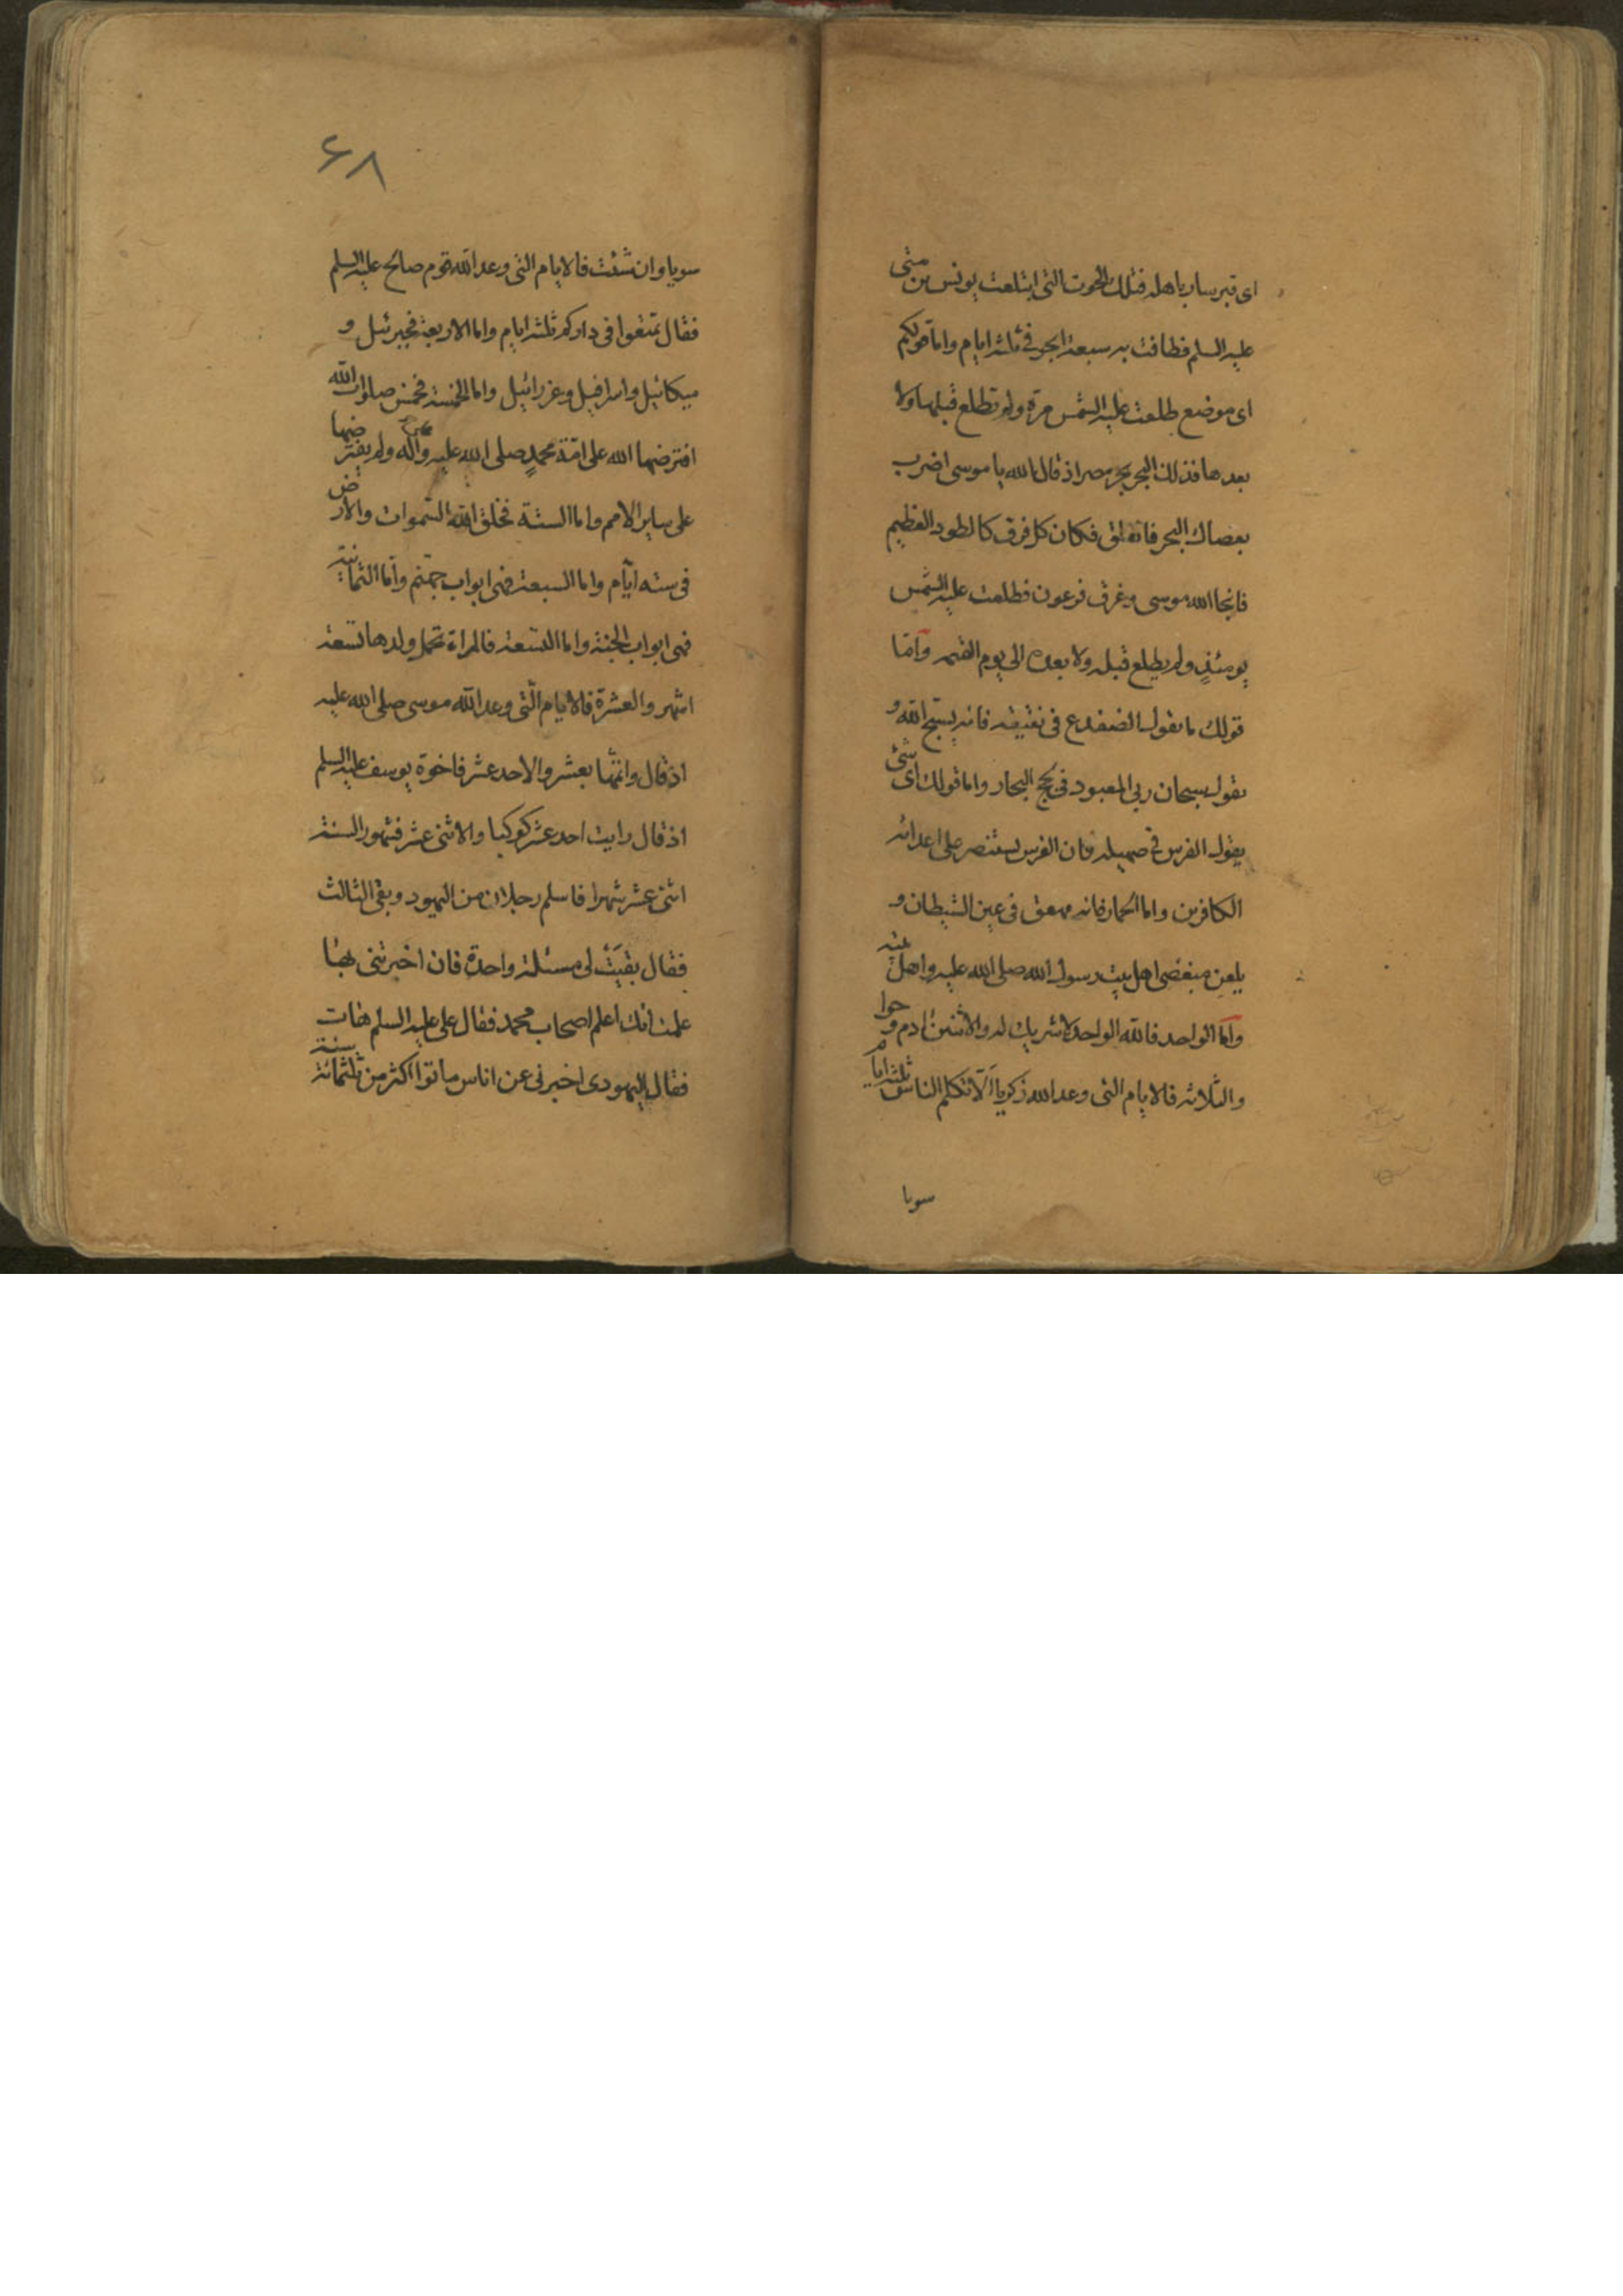 اى قبر سار باهله فتلك الحوت التى ابتلعت يونس بن متى
عليه السلم فطافت به سبعة ابحر فى ثلثه ايام واما قولكم
اى موضع طلعت عليه الشمس مرة ولم تطلع قبلها ولا
بعدها فذلك البحر بحر مصر اذ قال الله يا موسى اضرب
بعصاك البحر فانفلق فكان كل فرق كالطود العظيم
فانجا الله موسى وغرق فرعون فطلعت عليه الشمس
يومئذٍ ولم يطلع قبله ولا بعده الى يوم القيمه وامّا
قولك ما يقول الضفدع فى نقيقه فانه يسبّح الله و
يقول سبحان ربى المعبود فى لجج البحار واما قولك اى شئ
يقول الفرس فى صهيله فان الفرس يستنصر على اعدائه
الكافرين واما الحمار فانه ينهق فى عين الشيطان و
يلعن مبغضى اهل بيت رسول الله صلى الله عليه واهل بيته
وامّا الواحد فالله الواحد لا شريك له والاثنين ادم و حوا
والثلاثه فالايام التى وعد الله زكريا الّا تكلم الناس ثلثه ايام
سويا
۶۸
سويا وان شئت فالايام التى وعد الله قوم صالح عليه السلم
فقال تمتعوا فى داركم ثلثه ايام واما الاربعة فجبرئيل و
ميكائيل واسرافيل وعزرائيل واما الخمسة فخمس صلوات الله
افترضها الله على امّة محمدٍ صلى الله عليه وآله ولم يفترضها
على ساير الامم واما الستة فخلق الله السّموات والارض
فى سته ايّام واما السبعة فهى ابواب جهنّم وامّا الثمانية
فهى ابواب الجنة واما التسعة فالمراة تحمل ولدها تسعة
اشهر والعشرة فالايام الّتى وعد الله موسى صلى الله عليه
اذ قال واتمّنها بعشر والاحد عشر فاخوة يوسف عليه السلم
اذ قال رايت احد عشر كوكبا والاثنى عشر فشهور السنة
اثنى عشر شهرا فاسلم رجلان من اليهود وبقى الثالث
فقال بقيَتْ لى مسئلة واحدة فان اخبرتنى بها
علمت انك اعلم اصحاب محمد فقال على عليه السلم هات
فقال اليهودى اخبرنى عن اناس ماتوا اكثر من ثلثمائة سنة